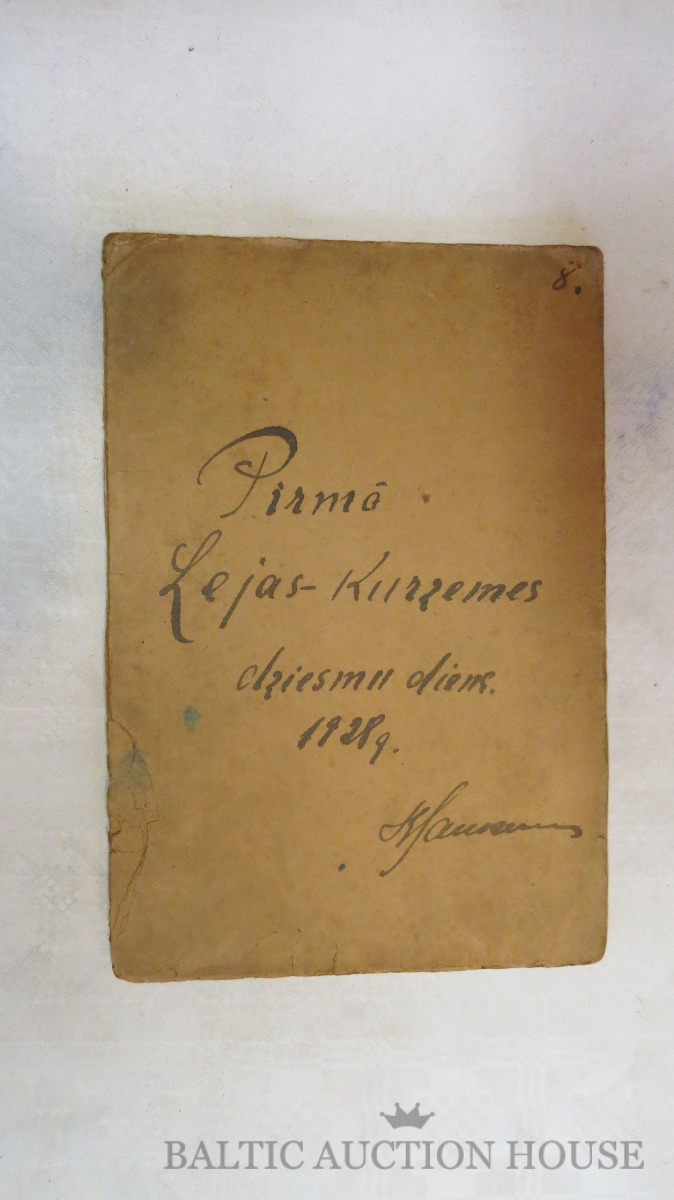 8.
Pirmā
Lejas-Kurzemes
dziesmu dien.
1928g.
BALTIC AUCTION HOUSE